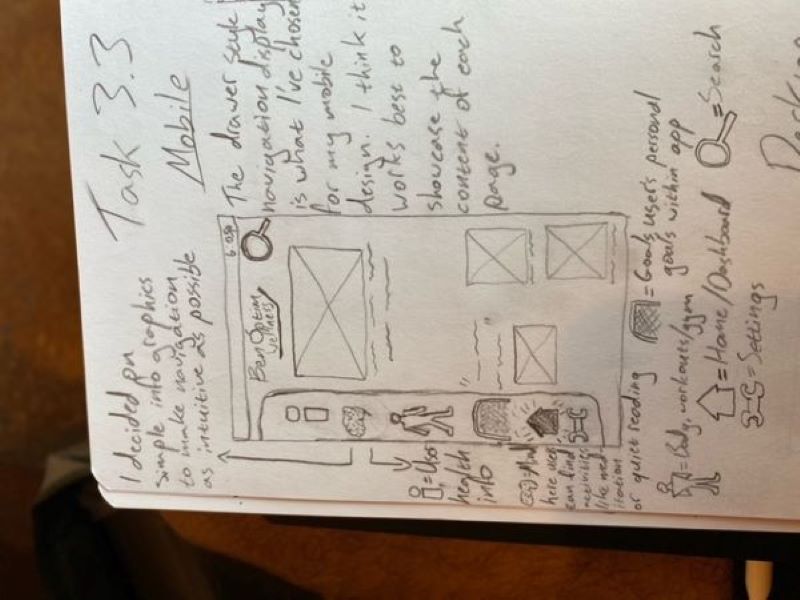 I decided on
simple info graphics
to make navigation
as intuitive as possible
Task 3.3
Mobile
The drawer style
navigation display
is what I've chosen
for my mobile
design. I think it
works best to
showcase the
content of each
page.
Ben Optim
Wellness
i = User
health
info
= Mind
here user
can find
activities
like med-
itation
or quiet reading
= Goals, user's personal
goals within app
= Body, workouts/gym
= Home/Dashboard
= Search
= Settings